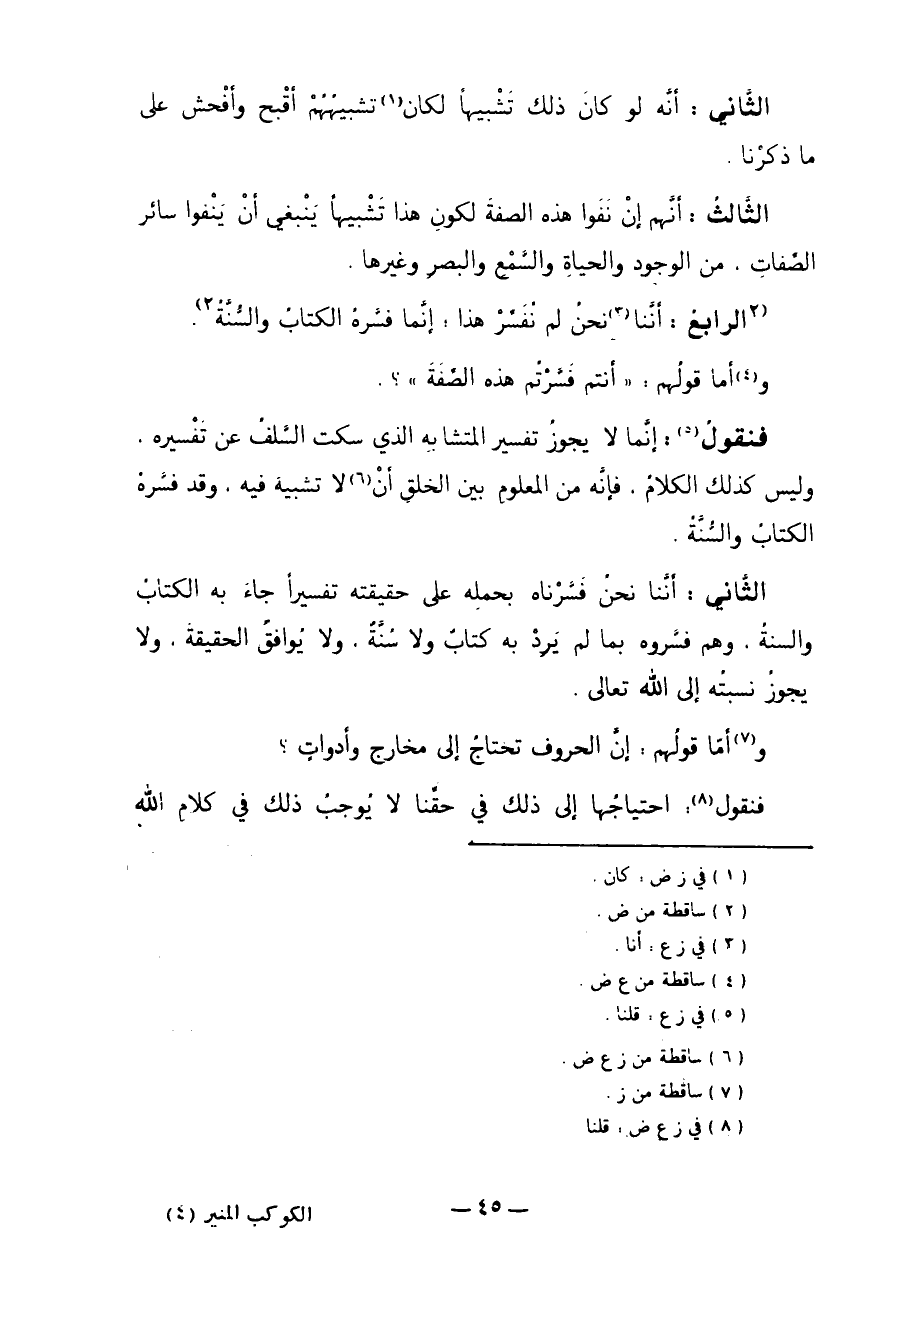 الثَّاني : أنَّه لو كانَ ذلك تَشْبيهاً لكان(١) تشبيهُهُمْ أقْبح وأفْحش على
ما ذكرْنا .
الثَّالثُ : أنَّهم إنْ نَفَوا هذه الصفةَ لكونِ هذا تَشْبيهاً يَنْبغي أنْ يَنْفوا سائر
الصِّفاتِ ، من الوجودِ والحياةِ والسَّمْعِ والبصرِ وغيرها .
(٢الرابعُ : أنَّنا(٣) نحنُ لم نُفَسِّرْ هذا ، إنَّما فسَّرهُ الكتابُ والسُّنَّةُ٢).
و(٤)أما قولُهم : « أنتم فَسَّرْتُم هذه الصِّفَةَ » ؟ .
فنقولُ(٥) : إنَّما لا يجوزُ تفسير المتشابه الذي سكت السَّلفُ عن تَفْسيره ،
وليس كذلك الكلامُ ، فإنَّه من المعلومِ بين الخلقِ أنْ(٦) لا تشبيهَ فيه ، وقد فسَّرهُ
الكتابُ والسُّنَّةُ .
الثَّاني : أنَّنا نحنُ فَسَّرْناه بحمله على حقيقته تفسيراً جاءَ به الكتابُ
والسنةُ ، وهم فسَّروه بما لم يَرِدْ به كتابٌ ولا سُنَّةٌ ، ولا يُوافقُ الحقيقةَ ، ولا
يجوزُ نسبتُه إلى الله تعالى .
و(٧)أمَّا قولُهم : إنَّ الحروف تحتاجُ إلى مخارج وأدواتٍ ؟
فنقول(٨): احتياجُها إلى ذلك في حقِّنا لا يُوجبُ ذلك في كلام الله
( ١ ) في ز ض : كان .
( ٢ ) ساقطة من ض .
( ٣ ) في ز ع : أنا .
( ٤ ) ساقطة من ع ض .
( ٥ ) في ز ع : قلنا .
( ٦ ) ساقطة من ز ع ض .
( ٧ ) ساقطة من ز .
( ٨ ) في ز ع ض : قلنا
— ٤٥ —
الكوكب المنير (٤)